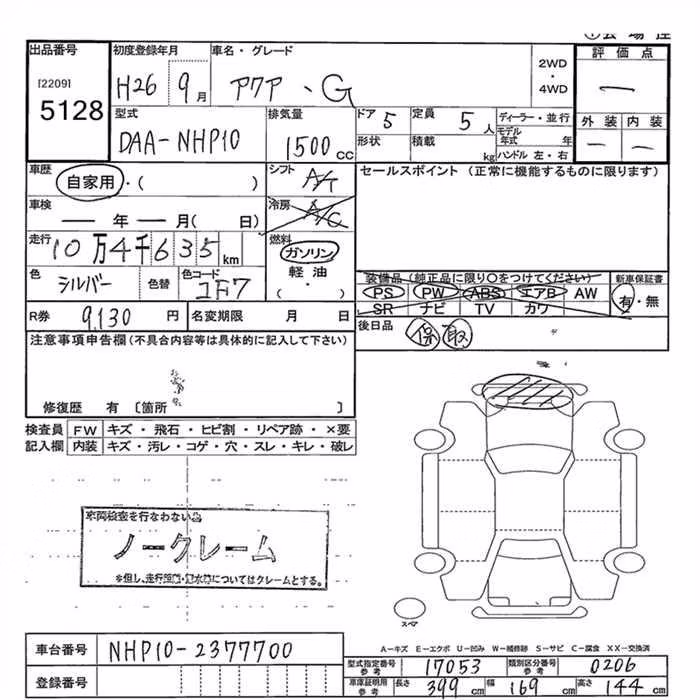 出品番号 初度登録年月 車名・グレード 2WD ・ 4WD 評価点
[2209] 5128 H26 9月 アクア、G —
外装 内装
— —
型式 排気量 ドア 5 定員 5人 ディーラー・並行
DAA-NHP10 1500cc 形状 積載 kg モデル年式 年 ハンドル 左・右
車歴 自家用・( ) シフト A/T セールスポイント (正常に機能するものに限ります)
車検 —年—月( 日) 冷房 A/C
走行 10万4千635km 燃料 ガソリン 軽油 ・( )
色 シルバー 色替 色コード 1F7
装備品(純正品に限り○をつけてください) 新車保証書
PS PW ABS エアB AW 有・無
SR ナビ TV カワ
R券 9,130円 名変期限 月 日 後日品 保 取
注意事項申告欄(不具合内容等は具体的に記入して下さい)
修復歴 有 〔箇所 〕
検査員記入欄 FW キズ・飛石・ヒビ割・リペア跡・×要
内装 キズ・汚レ・コゲ・穴・スレ・キレ・破レ
車両検査を行なわない為
ノークレーム
※但し、走行距離・冠水等についてはクレームとする。
スペア
A-キズ E-エクボ U-凹み W-補修跡 S-サビ C-腐食 XX-交換済
車台番号 NHP10-2377700
登録番号
型式指定番号 参考 17053 類別区分番号 参考 0206
車庫証明用 参考 長さ 399cm 幅 169cm 高さ 144cm